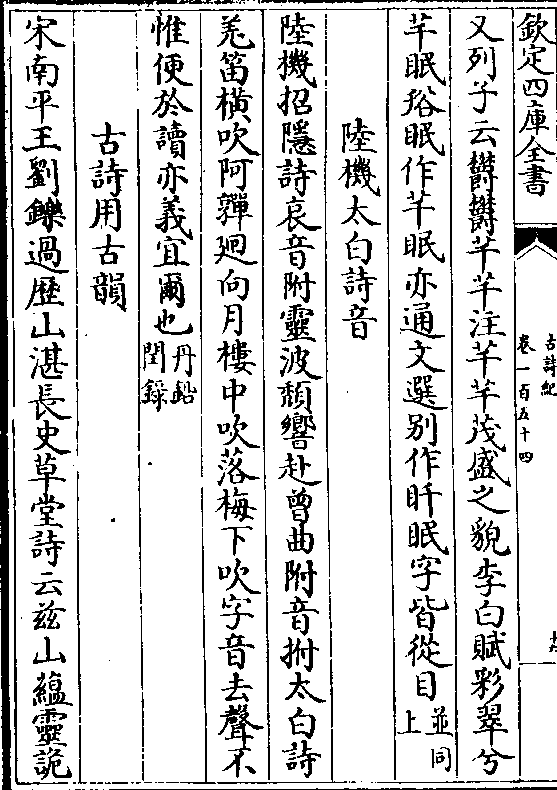 欽定四庫全書
古詩紀
卷一百五十四
十六
又列子云鬱鬱芊芊注芊芊茂盛之貌李白賦彩翠兮
芊眠谸眠作芊眠亦通文選别作盰眠字皆從目並同上
陸機太白詩音
陸機招隱詩哀音附靈波頽響赴曾曲附音拊太白詩
羌笛横吹阿嚲廻向月樓中吹落梅下吹字音去聲不
惟便於讀亦義宜爾也丹鉛閏錄
古詩用古韻
宋南平王劉鑠過歷山湛長史草堂詩云兹山藴靈詭